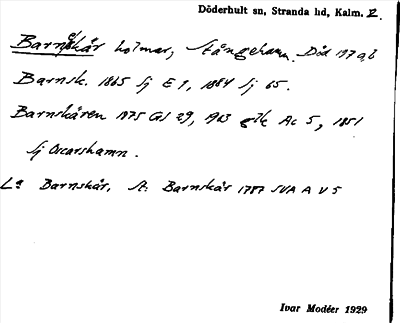 Döderhult sn, Stranda hd, Kalm. F.
Barnskär holmar, Stångehamn. Död 197 a,b
Barnsk. 1865 Sj E 1, 1884 Sj 65.
Barnskären 1875 GS 29, 1903 Ac 5, 1851
Sj Oscarshamn.
La Barnskär, St. Barnskär 1787 SVA A V 5
Ivar Modéer 1929